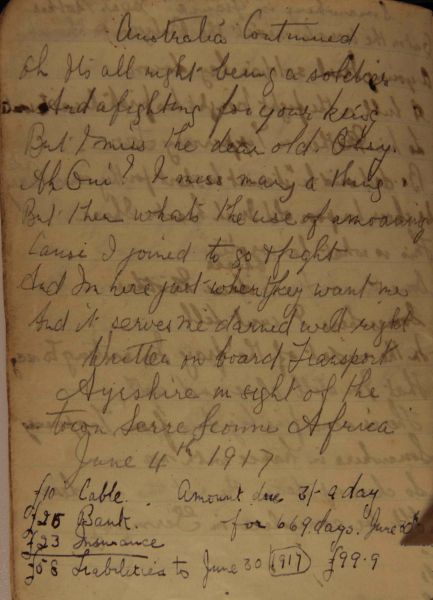 Australia Continued
Oh Its all right being a soldier
And a fighting for your king
But I miss the dear old Ossy.
Ah Oui! I miss many a thing
But then whats the use of amoaning
Cause I joined to go & fight
And Im here just where they want me
And it serves me darned well right
Written on board Transport
Ayrshire in sight of the
town Serre Leonne Africa
June 4th 1917
£10 Cable. Amount due 3/- a day
£25 Bank. for 669 days. June 30th
£23 Insurance
£58 Liabilities to June 30 1917 £99-9